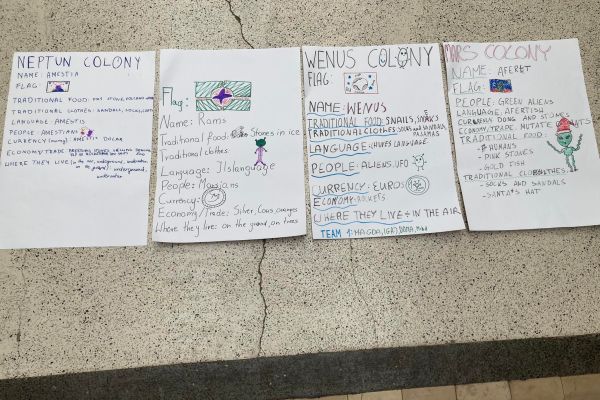 NEPTUN COLONY
NAME: AMESTIA
FLAG:
TRADITIONAL FOOD
TRADITIONAL CLOTHES: SANDALS, SOCKS,
LANGUAGE: AMESTIS
PEOPLE: AMESTIANS
CURRENCY (money): AMESTIS DOLAR
ECONOMY/TRADE:
WHERE THEY LIVE:
underground,
Flag:
Name: Rams
Traditional food: Stones in ice
Traditional clothes
Language: Ilslanguage
People: Marsians
Currency:
Economy/Trade: Silver, Cous, oranges
Where they live: on the ground, on trees
WENUS COLONY
FLAG:
NAME: WENUS
TRADITIONAL FOOD: SNAILS,
TRADITIONAL CLOTHES: SOCKS AND SANDALS,
PAJAMAS
LANGUAGE: LANGUAGE
PEOPLE: ALIENS, UFO
CURRENCY: EUROS
ECONOMY: ROCKETS
WHERE THEY LIVE IN THE AIR
TEAM 1: MAGDA, IGA,
MARS COLONY
NAME: AFERET
FLAG:
PEOPLE: GREEN ALIENS
LANGUAGE: AFERTISH
CURRENCY DONG AND STONE
ECONOMY, TRADE, MUTATE PLANTS
TRADITIONAL FOOD:
- HUMANS
- PINK STONES
- GOLD FISH
TRADITIONAL CLOTHES:
- SOCKS AND SANDALS
- SANTA'S HAT